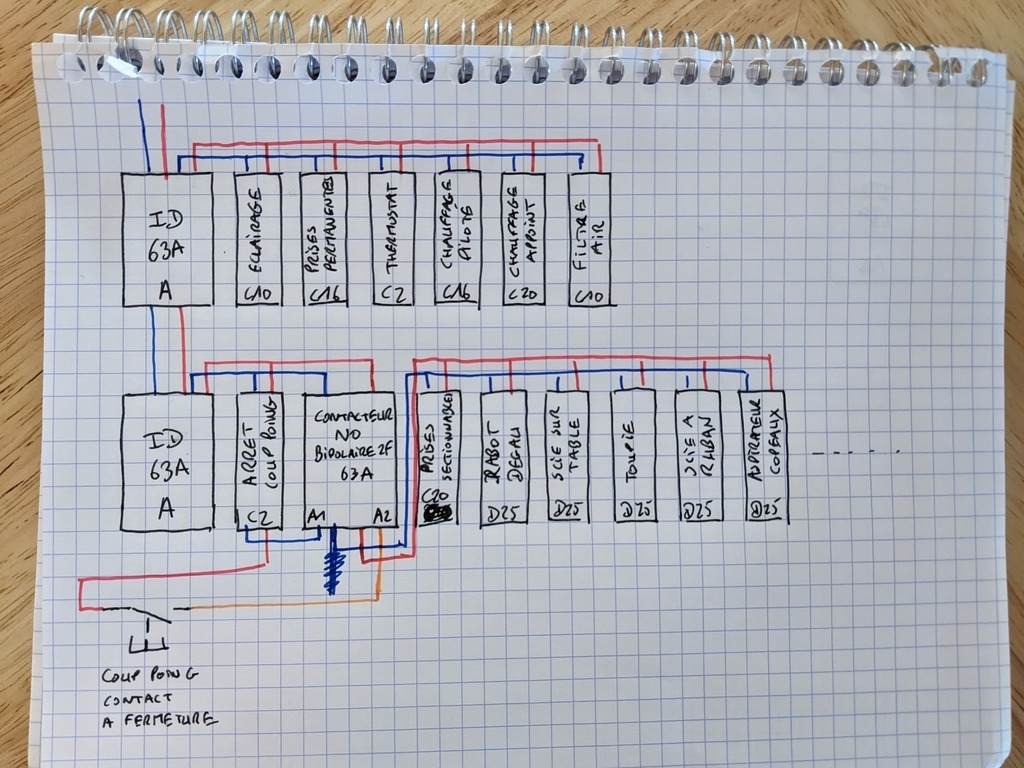 ID
63A
A
ECLAIRAGE
C10
PRISES
PERMANENTES
C16
THERMOSTAT
C2
CHAUFFAGE
PILOTÉ
C16
CHAUFFAGE
APPOINT
C20
FILTRE
AIR
C10
ID
63A
A
ARRET
COUP POING
C2
CONTACTEUR
NO
BIPOLAIRE 2F
63A
A1
A2
PRISES
SECTIONNABLES
C20
RABOT
DEGAU
D25
SCIE SUR
TABLE
D25
TOUPIE
D25
SCIE A
RUBAN
D25
ASPIRATEUR
COPEAUX
D25
COUP POING
CONTACT
A FERMETURE